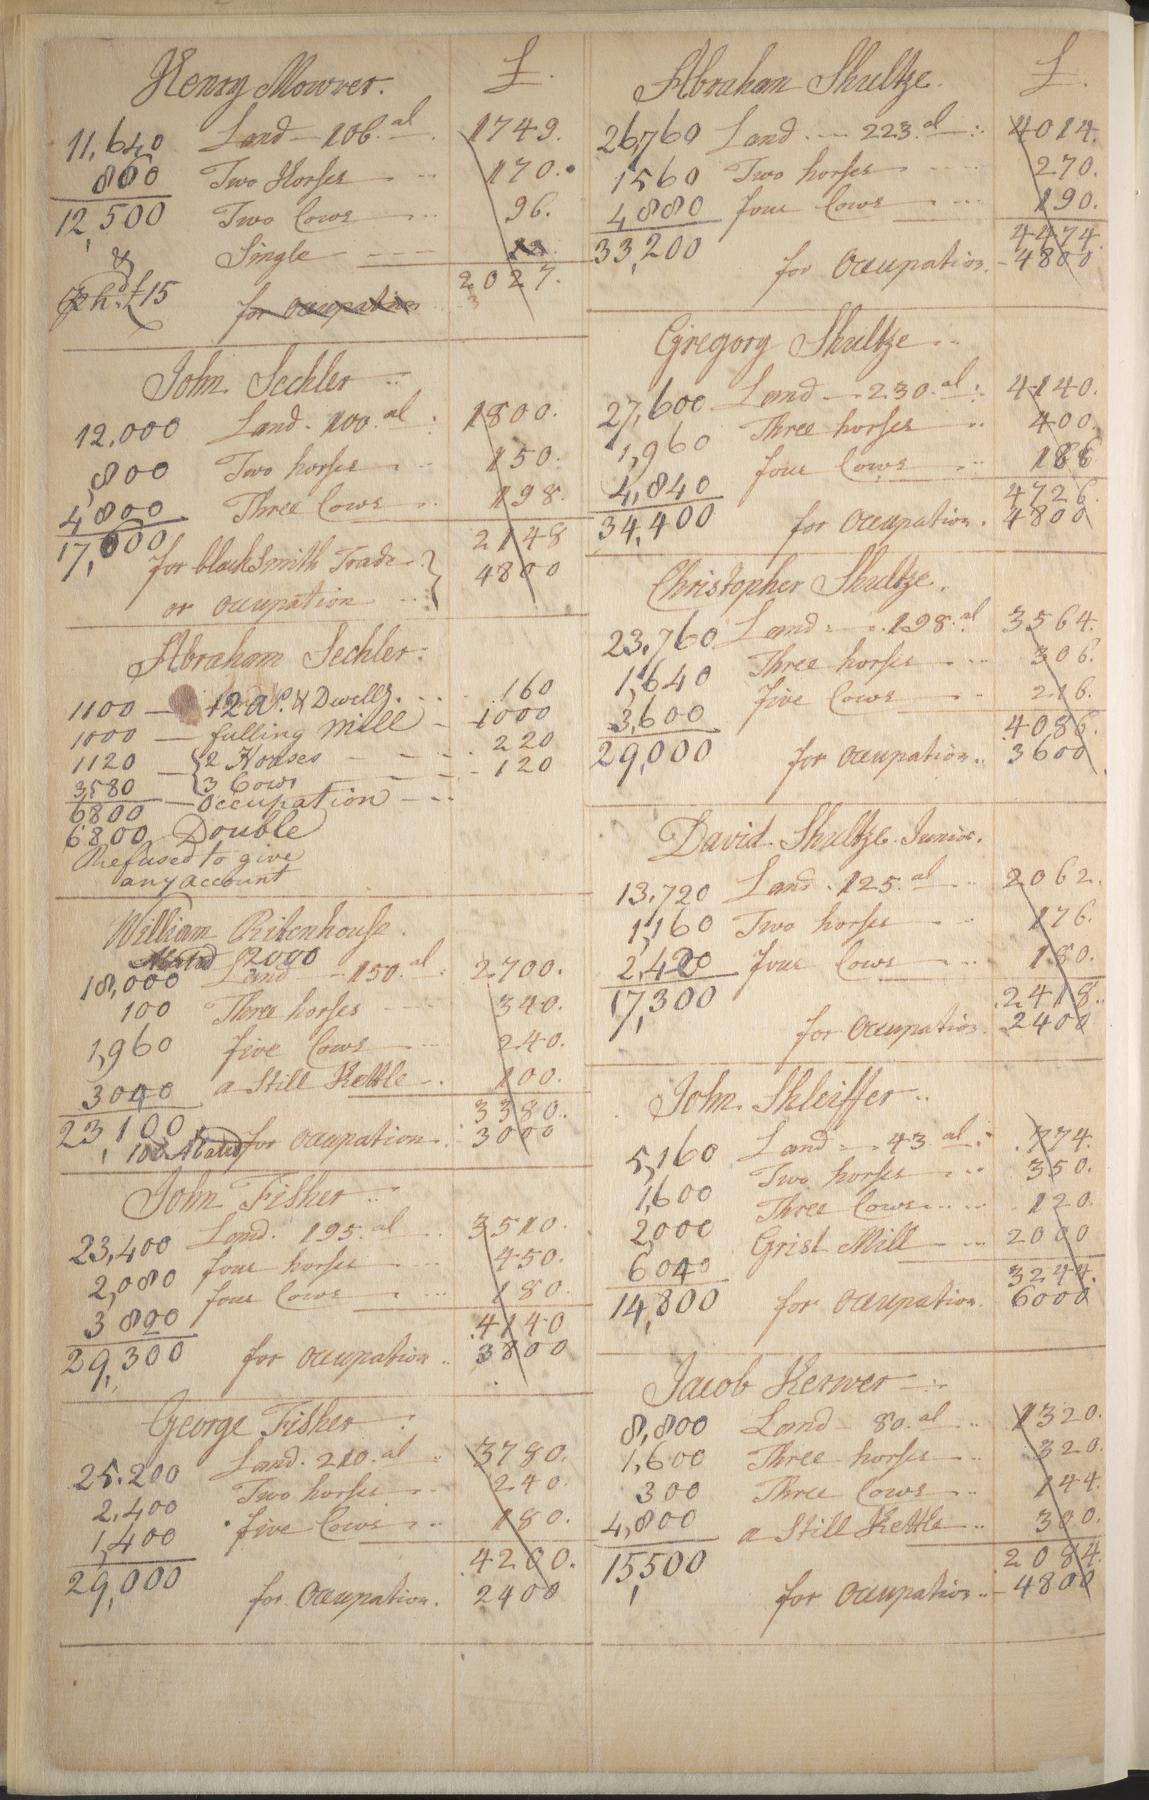 Henry Mowrer. £.
11,640 Land — 106. al. 1749.
860 Two Horses 170.
12,500 Two Cows 96.
& Single
£15 2027.
for Occupation
John Sechler
12,000 Land. 100. al: 1800.
800 Two horses 150.
4800 Three Cows 198.
17,600 2148
for blackSmith Trade 4800
or occupation
Abraham Sechler:
1100 — 12 as. & Dwellg. 160
1000 — fulling Mill 1000
1120 — 2 Horses 220
3 Cows 120
3580 — Occupation
6800
6800 Double
Refused to give
any account
William Ritenhouse.
2000
18,000 Land — 150. al: 2700.
100 Three horses 340.
1,960 five Cows 240.
3040 a Still Kettle. 100.
23,100 3380.
100 Abated for occupation 3000
John Fisher
23,400 Land. 195. al 3510.
2,080 four horses 450.
3820 four Cows 180.
29,300 4140
for occupation 3800
George Fisher
25.200 Land. 210. al 3780.
2,400 Two horses 240.
1,400 five Cows 180.
29,000 4200.
for Occupation. 2400
Abraham Shultze. £.
26,760 Land — 223. al 4014.
1560 Two horses 270.
4,880 four Cows 190.
33,200 4474.
for Occupation. 4800
Gregory Shultze
27,600 Land — 230. al: 4140.
1,960 Three horses 400.
4,840 four Cows 186
34,400 4726.
for Occupation. 4800
Christopher Shultze.
23,760 Land — 198. al 3564.
1,640 Three horses 306.
3,600 five Cows 216.
29,000 4086.
for Occupation 3600
David Shultze Junior.
13,720 Land. 125. al 2062.
1,160 Two horses 176.
2,420 four Cows 180.
17,300 2418.
for Occupation. 2400
John Shleiffer
5,160 Land — 43. al: 774.
1,600 Two horses 350.
2,000 Three Cows 120.
6040 Grist Mill 2000
14,800 3244.
for occupation 6000
Jacob Kerwer
8,800 Land — 80. al 1320.
1,600 Three horses 320.
300 Three Cows 144.
4,800 a Still Kettle 300.
15500 2084.
for Occupation 4800